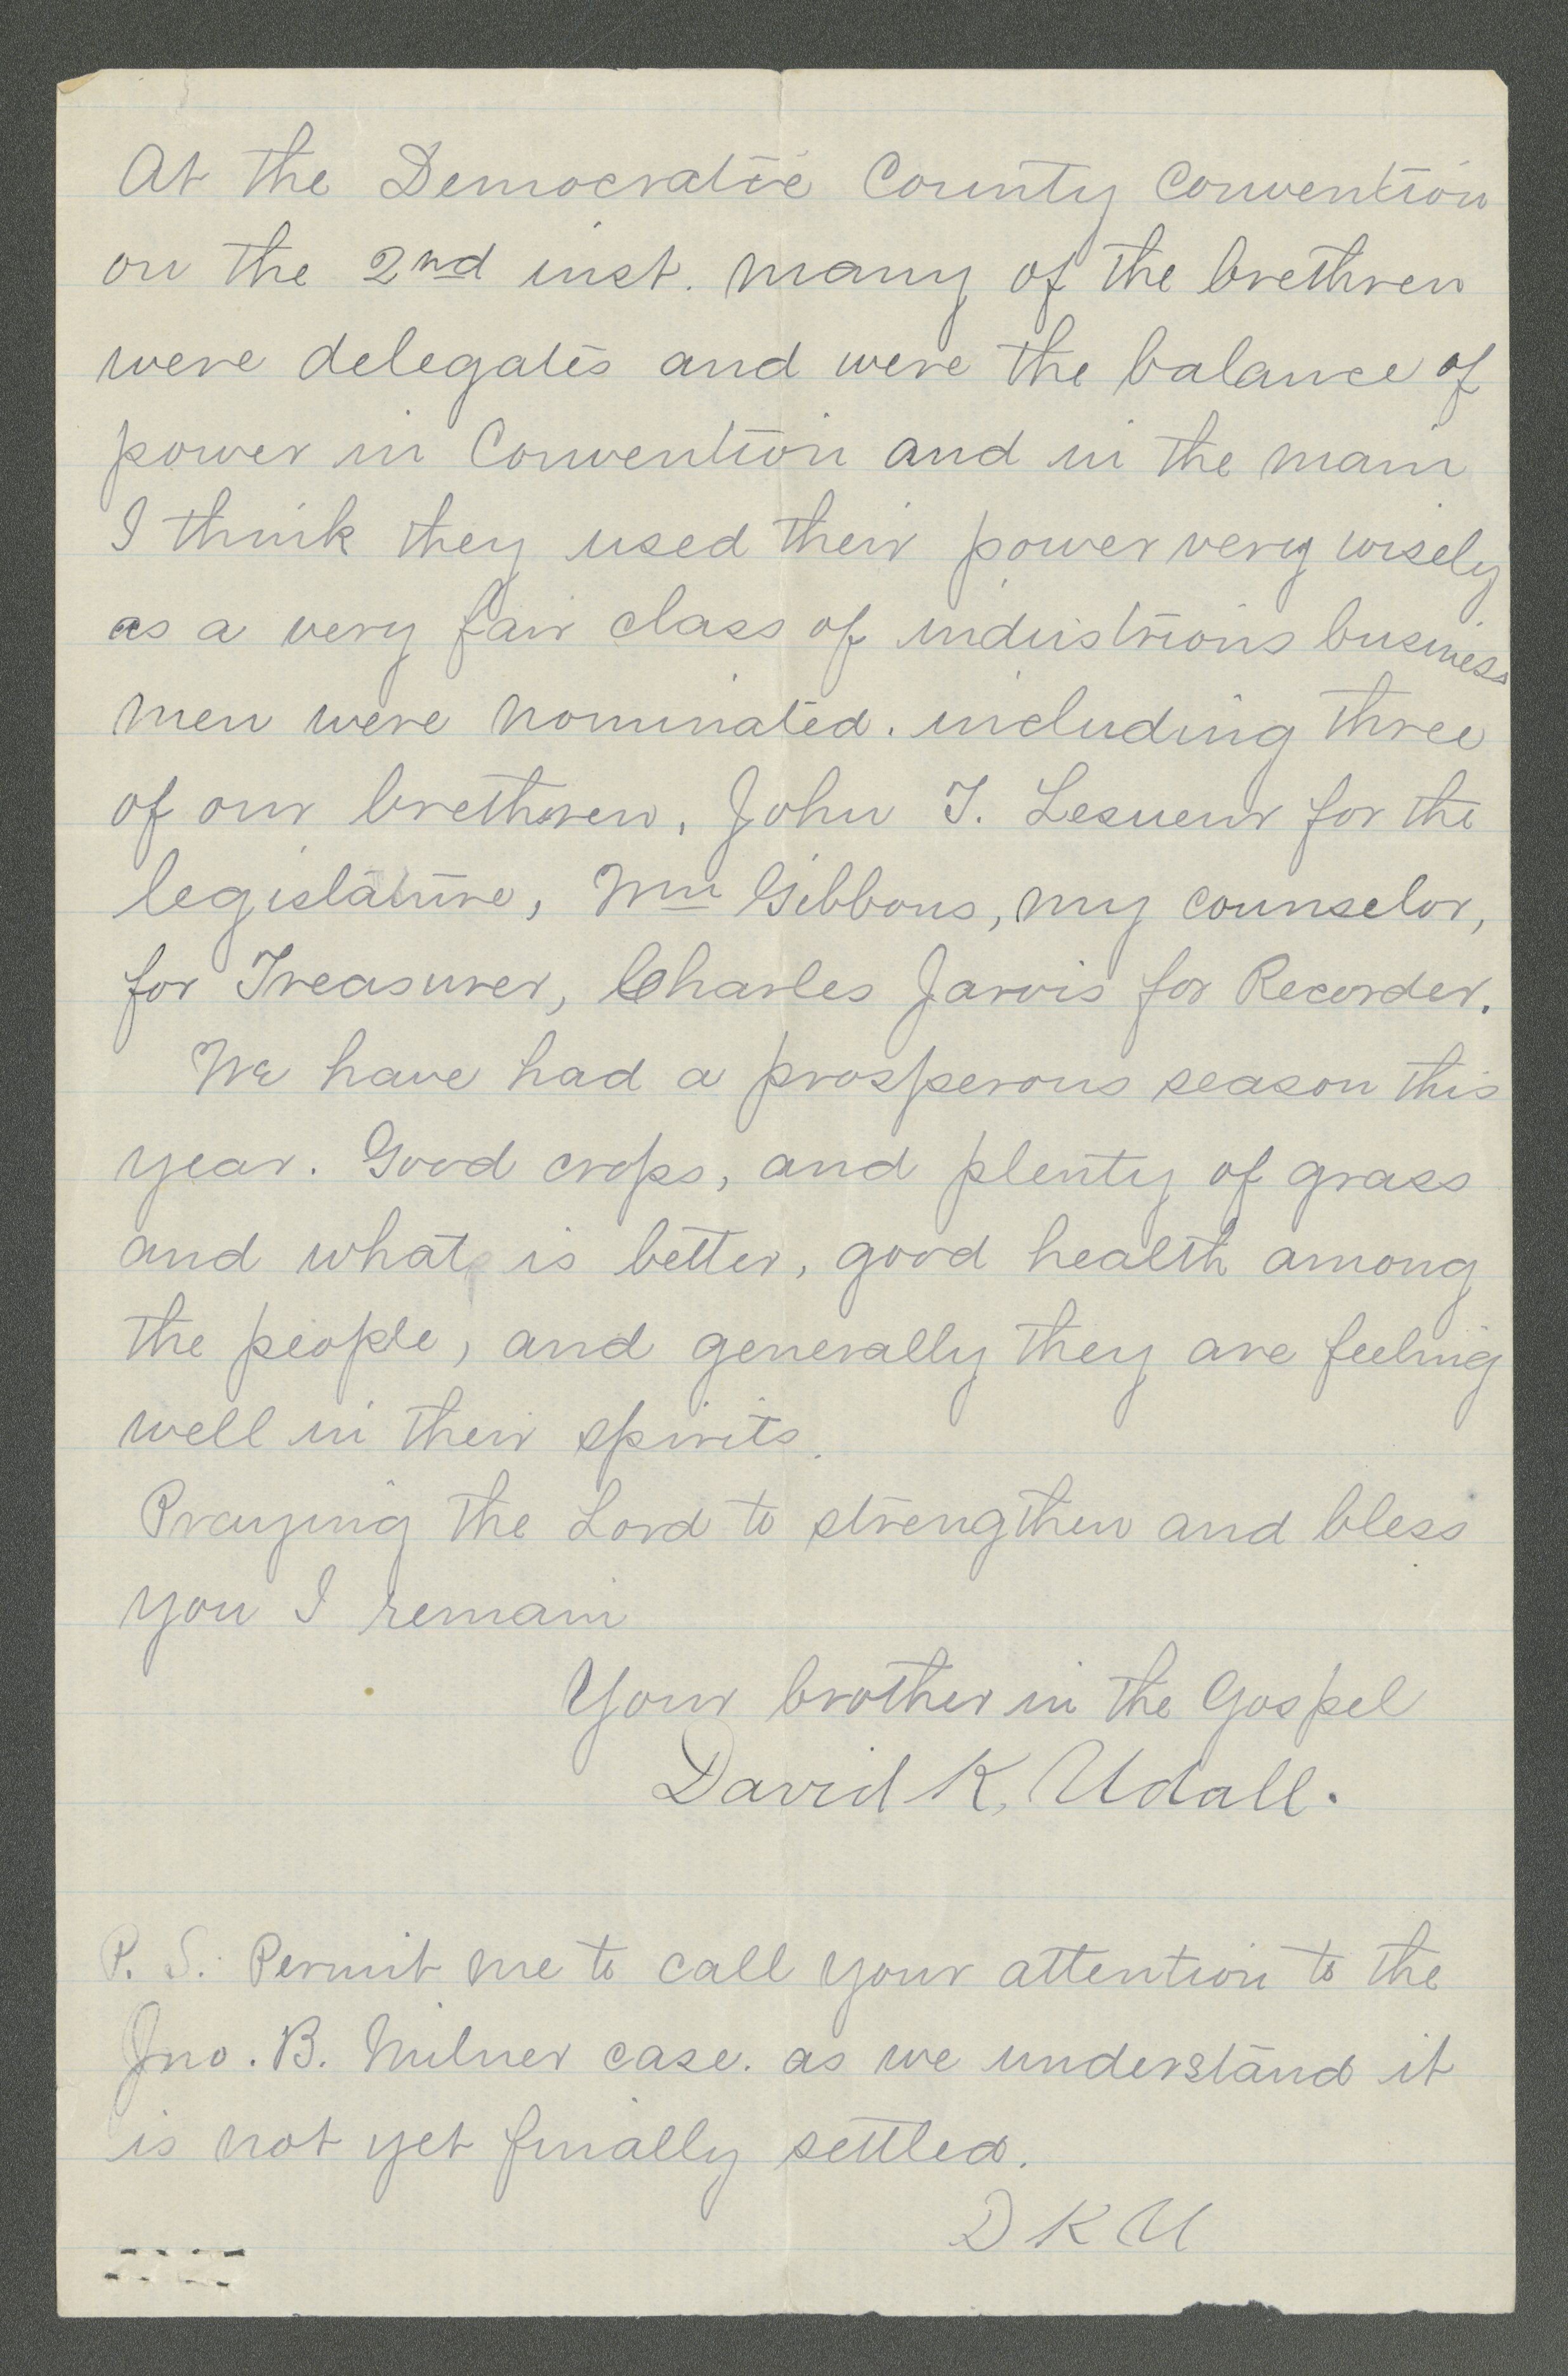 At the Democratic County Convention
on the 2nd inst. many of the brethren
were delegates and were the balance of
power in Convention and in the main
I think they used their power very wisely
as a very fair class of industrious business
men were nominated. including three
of our brethren, John T. Lesueur for the
legislature, Wm Gibbons, my counselor,
for Treasurer, Charles Jarvis for Recorder.
We have had a prosperous season this
year. Good crops, and plenty of grass
and what is better, good health among
the people, and generally they are feeling
well in their spirits.
Praying the Lord to strengthen and bless
you I remain
Your brother in the Gospel
David K. Udall.
P. S. Permit me to call your attention to the
Jno. B. Milner case. as we understand it
is not yet finally settled.
D K U